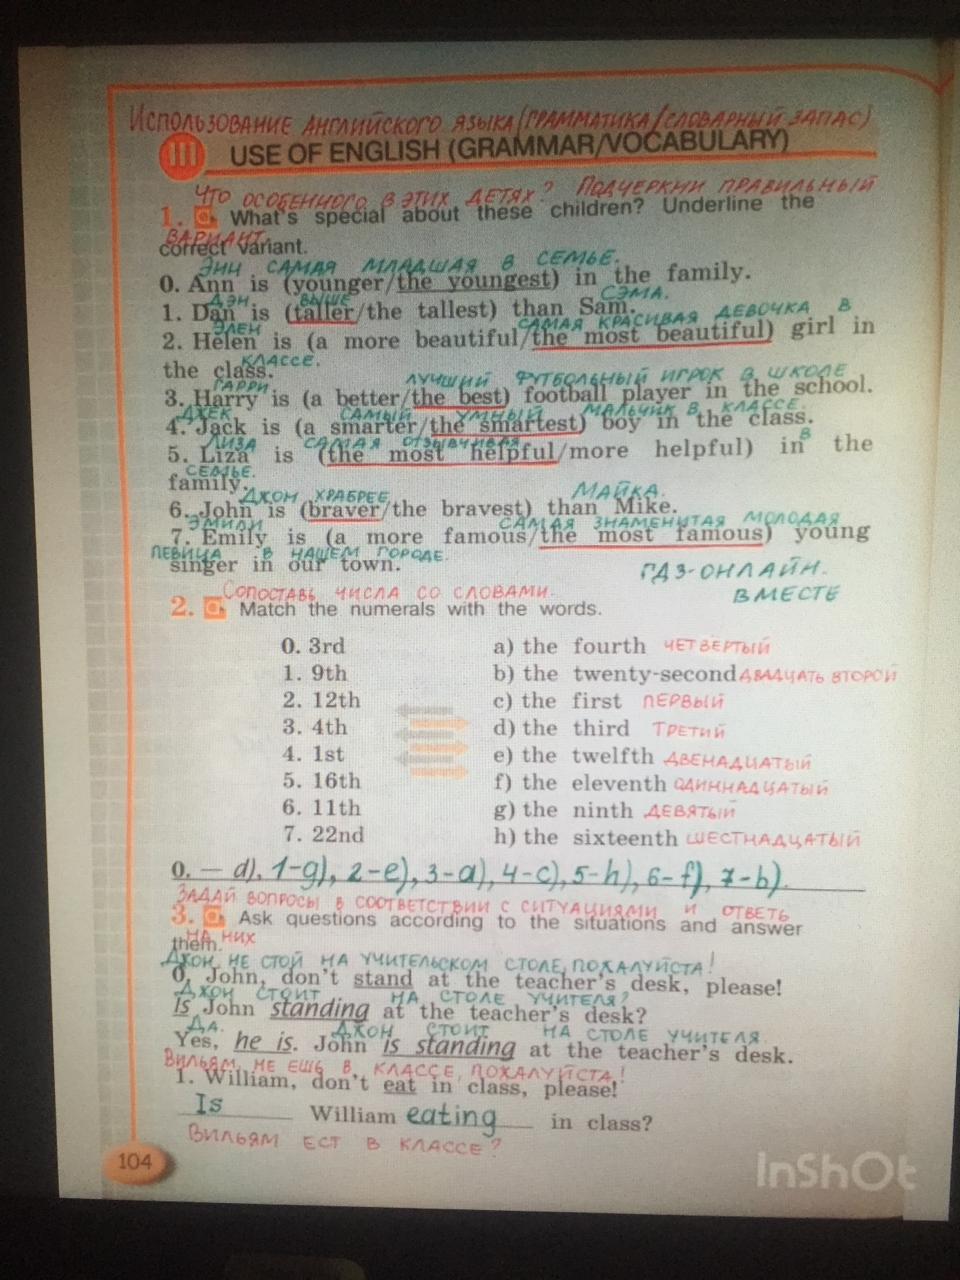 ИСПОЛЬЗОВАНИЕ АНГЛИЙСКОГО ЯЗЫКА (ГРАММАТИКА/СЛОВАРНЫЙ ЗАПАС)
III USE OF ENGLISH (GRAMMAR/VOCABULARY)
ЧТО ОСОБЕННОГО В ЭТИХ ДЕТЯХ? ПОДЧЕРКНИ ПРАВИЛЬНЫЙ
1. What's special about these children? Underline the
ВАРИАНТ.
correct variant.
ЭНН САМАЯ МЛАДШАЯ В СЕМЬЕ.
0. Ann is (younger/the youngest) in the family.
ДЭН ВЫШЕ СЭМА.
1. Dan is (taller/the tallest) than Sam.
ЭЛЕН САМАЯ КРАСИВАЯ ДЕВОЧКА В
2. Helen is (a more beautiful/the most beautiful) girl in
КЛАССЕ.
the class.
ГАРРИ ЛУЧШИЙ ФУТБОЛЬНЫЙ ИГРОК В ШКОЛЕ
3. Harry is (a better/the best) football player in the school.
ДЖЕК САМЫЙ УМНЫЙ МАЛЬЧИК В КЛАССЕ.
4. Jack is (a smarter/the smartest) boy in the class.
ЛИЗА САМАЯ ОТЗЫВЧИВАЯ В
5. Liza is (the most helpful/more helpful) in the
СЕМЬЕ.
family.
ДЖОН ХРАБРЕЕ МАЙКА.
6. John is (braver/the bravest) than Mike.
ЭМИЛИ САМАЯ ЗНАМЕНИТАЯ МОЛОДАЯ
7. Emily is (a more famous/the most famous) young
ПЕВИЦА В НАШЕМ ГОРОДЕ.
singer in our town.
ГДЗ-ОНЛАЙН.
ВМЕСТЕ
СОПОСТАВЬ ЧИСЛА СО СЛОВАМИ.
2. Match the numerals with the words.
0. 3rd a) the fourth ЧЕТВЁРТЫЙ
1. 9th b) the twenty-second ДВАДЦАТЬ ВТОРОЙ
2. 12th c) the first ПЕРВЫЙ
3. 4th d) the third ТРЕТИЙ
4. 1st e) the twelfth ДВЕНАДЦАТЫЙ
5. 16th f) the eleventh ОДИННАДЦАТЫЙ
6. 11th g) the ninth ДЕВЯТЫЙ
7. 22nd h) the sixteenth ШЕСТНАДЦАТЫЙ
0. — d), 1-g), 2-e), 3-a), 4-c), 5-h), 6-f), 7-b).
ЗАДАЙ ВОПРОСЫ В СООТВЕТСТВИИ С СИТУАЦИЯМИ И ОТВЕТЬ
3. Ask questions according to the situations and answer
НА НИХ
them.
ДЖОН, НЕ СТОЙ НА УЧИТЕЛЬСКОМ СТОЛЕ, ПОЖАЛУЙСТА!
0. John, don't stand at the teacher's desk, please!
ДЖОН СТОИТ НА СТОЛЕ УЧИТЕЛЯ?
Is John standing at the teacher's desk?
ДА. ДЖОН СТОИТ НА СТОЛЕ УЧИТЕЛЯ.
Yes, he is. John is standing at the teacher's desk.
ВИЛЬЯМ, НЕ ЕШЬ В КЛАССЕ, ПОЖАЛУЙСТА!
1. William, don't eat in class, please!
Is William eating in class?
ВИЛЬЯМ ЕСТ В КЛАССЕ?
104
InShOt